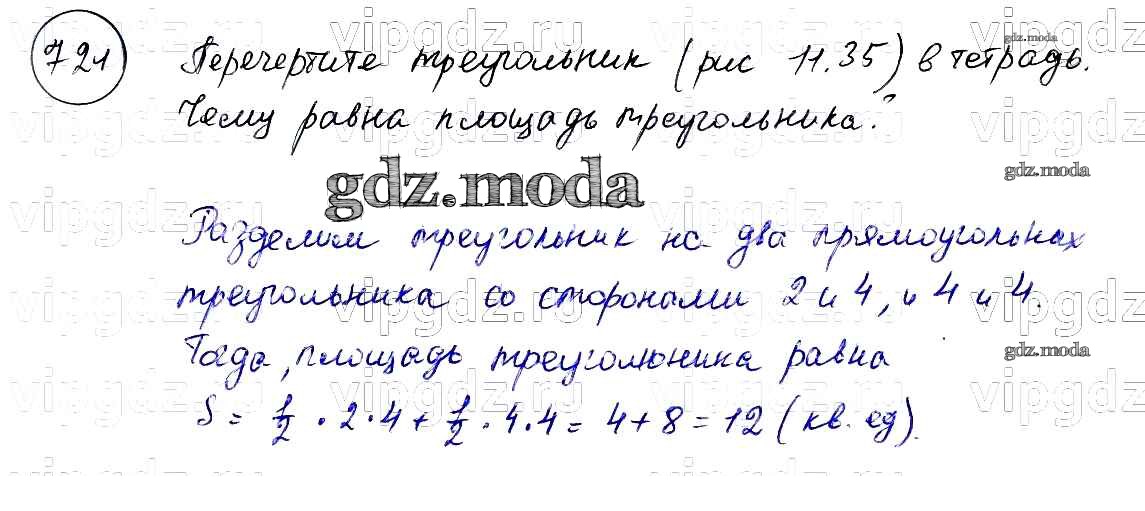 721 Перечертите треугольник (рис 11.35) в тетрадь.
Чему равна площадь треугольника?
gdz.moda
Разделим треугольник на два прямоугольнах
треугольника со сторонами 2 и 4, и 4 и 4.
Тогда, площадь треуголюника равна
S = 1/2 · 2 · 4 + 1/2 · 4 · 4 = 4 + 8 = 12 (кв. ед).
gdz.moda
gdz.moda
gdz.moda
vipgdz.ru